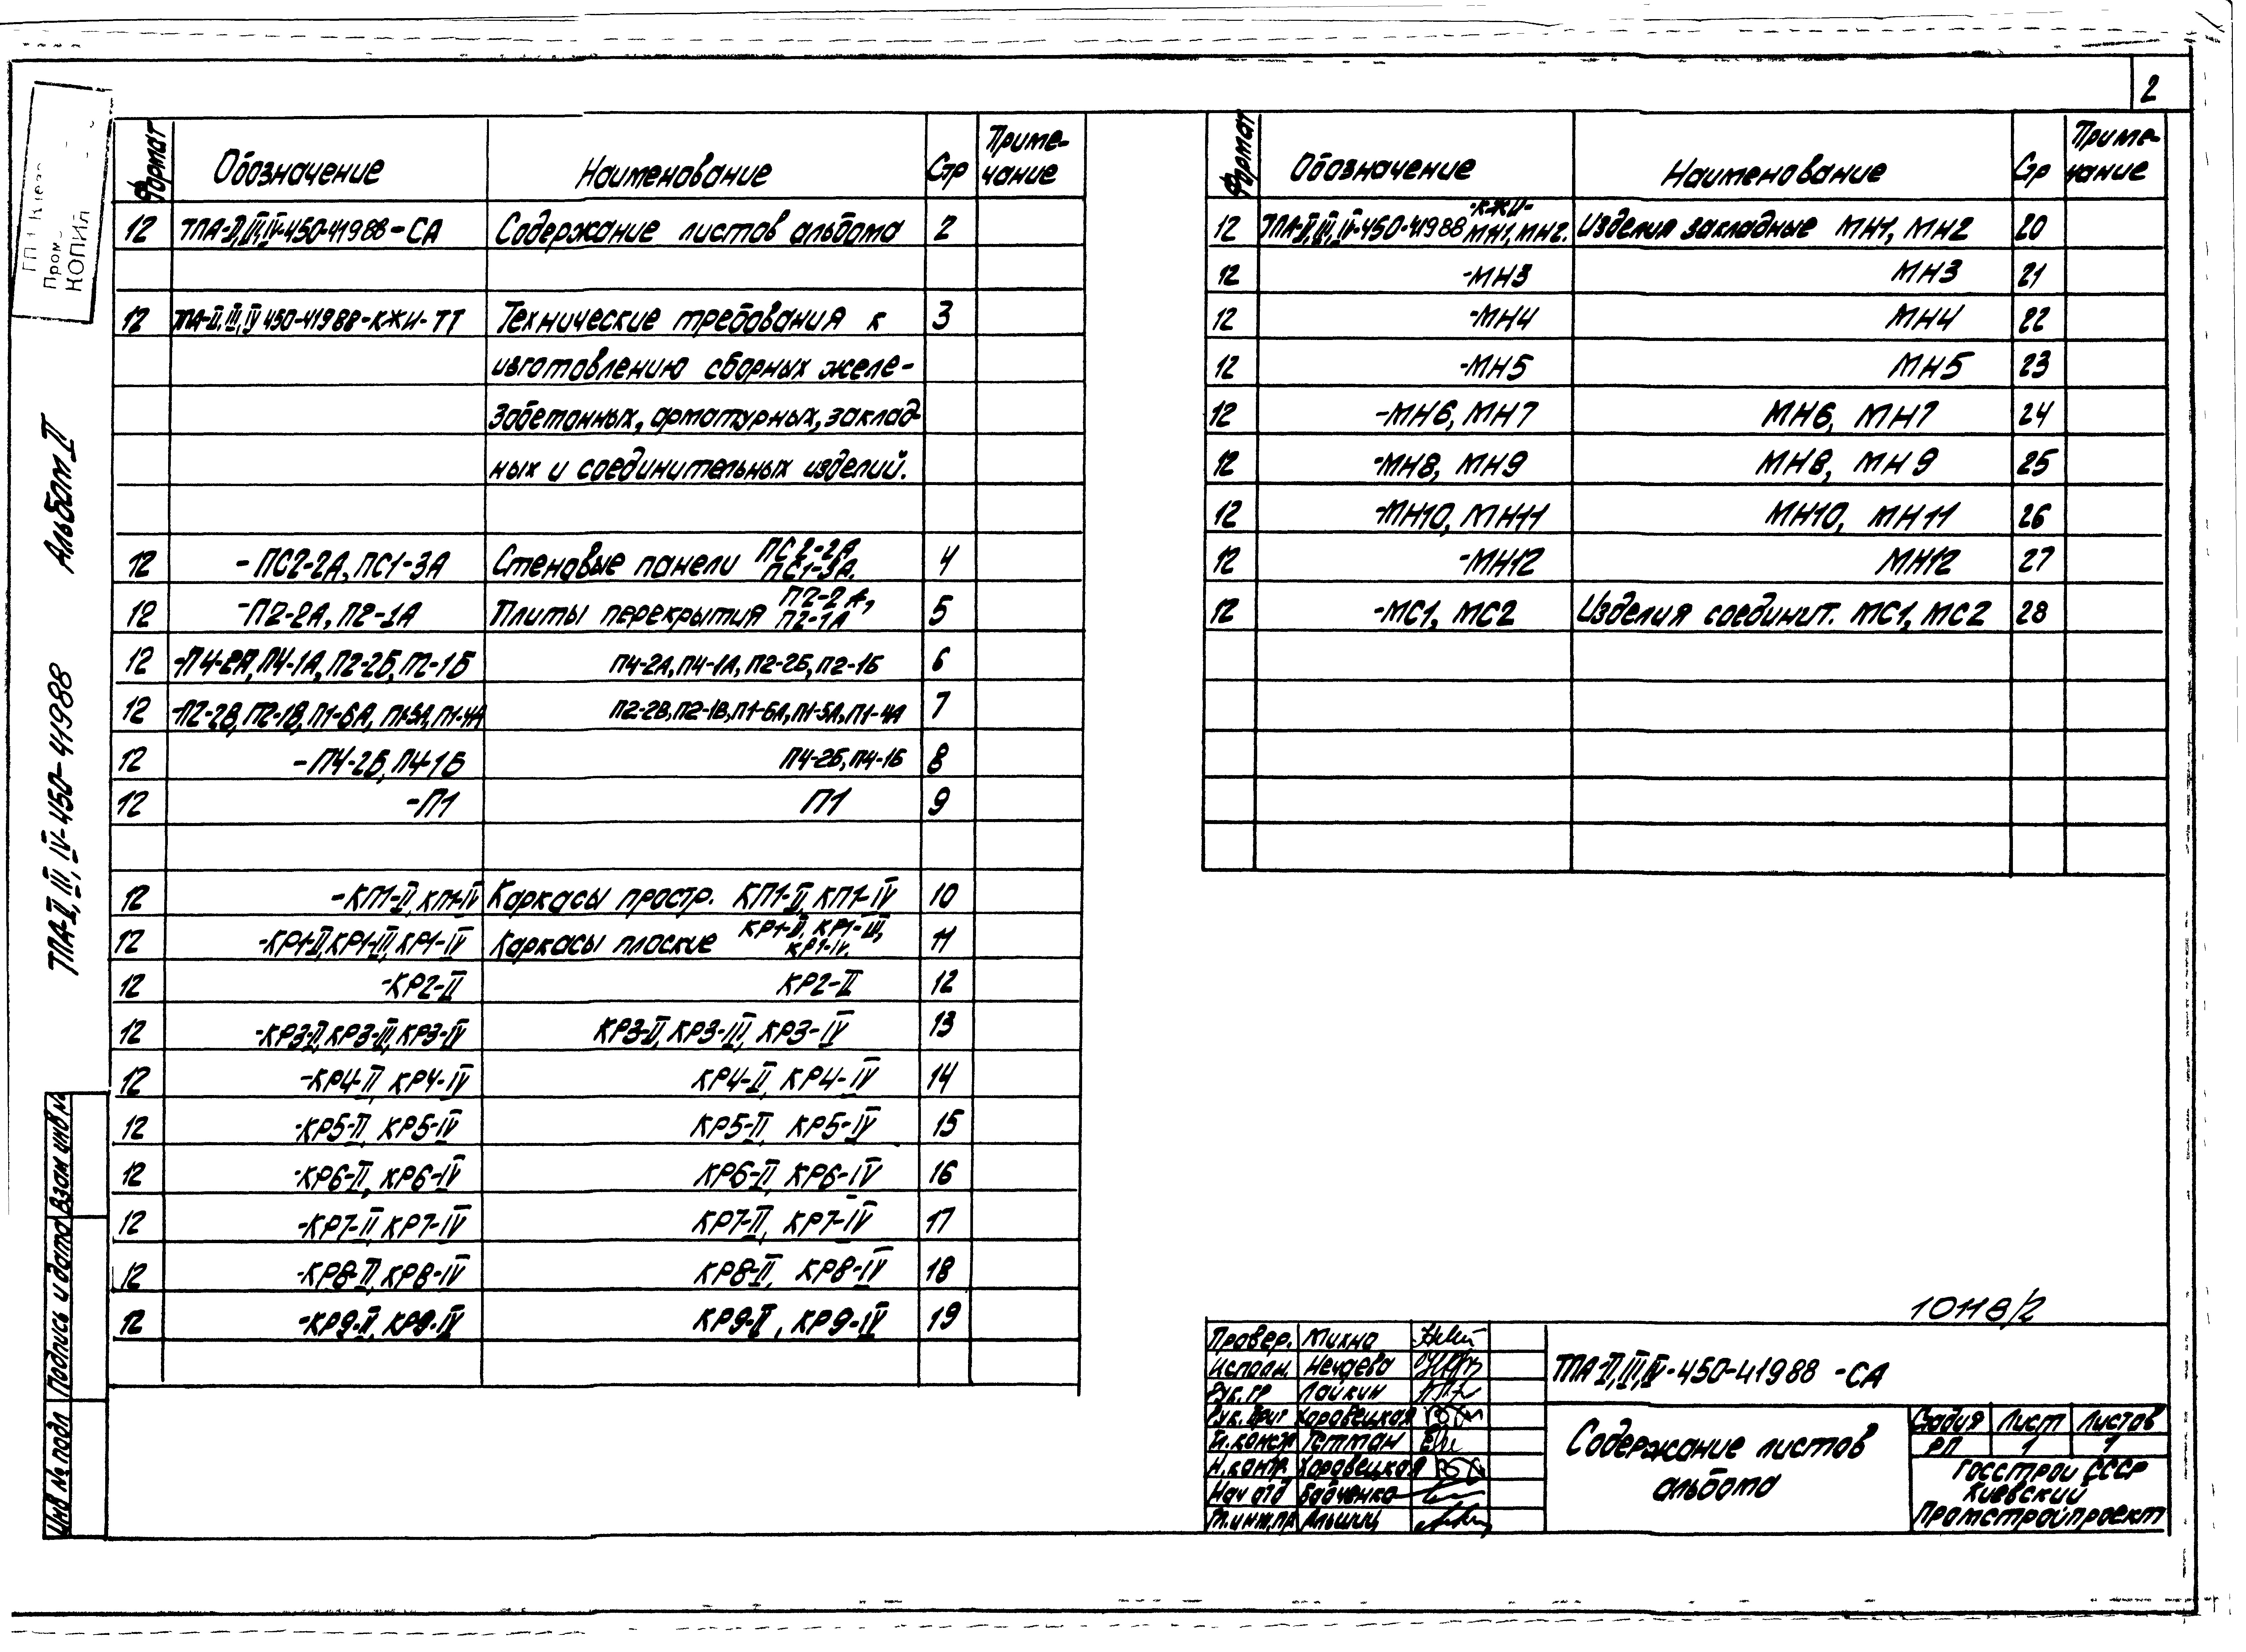 2
Формат Обозначение Наименование Стр Приме-
чание
12 ТПА-II,III,IV-450-41988-СА Содержание листов альбома 2
12 ТПА-II,III,IV 450-41988-КЖИ-ТТ Технические требования к 3
изготовлению сборных желе-
зобетонных, арматурных, заклад-
ных и соединительных изделий.
12 -ПС2-2А, ПС1-3А Стеновые панели ПС2-2А ПС1-3А. 4
12 -П2-2А, П2-1А Плиты перекрытия П2-2А, П2-1А 5
12 -П4-2А, П4-1А, П2-2Б, П2-1Б П4-2А, П4-1А, П2-2Б, П2-1Б 6
12 -П2-2В, П2-1В, П1-6А, П1-5А, П1-4А П2-2В, П2-1В, П1-6А, П1-5А, П1-4А 7
12 -П4-2Б, П4-1Б П4-2Б, П4-1Б 8
12 -П1 П1 9
12 -КП1-II, КП1-IV Каркасы простр. КП1-II, КП1-IV 10
12 -КР1-II, КР1-III, КР1-IV Каркасы плоские КР1-II, КР1-III, КР1-IV. 11
12 -КР2-II КР2-II 12
12 -КР3-II, КР3-III, КР3-IV КР3-II, КР3-III, КР3-IV 13
12 -КР4-II, КР4-IV КР4-II, КР4-IV 14
12 -КР5-II, КР5-IV КР5-II, КР5-IV 15
12 -КР6-II, КР6-IV КР6-II, КР6-IV 16
12 -КР7-II, КР7-IV КР7-II, КР7-IV 17
12 -КР8-II, КР8-IV КР8-II, КР8-IV 18
12 -КР9-II, КР9-IV КР9-II, КР9-IV 19
Формат Обозначение Наименование Стр Приме-
чание
12 ТПА-II,III,IV-450-41988 -КЖИ- МН1, МН2. Изделия закладные МН1, МН2 20
12 -МН3 МН3 21
12 -МН4 МН4 22
12 -МН5 МН5 23
12 -МН6, МН7 МН6, МН7 24
12 -МН8, МН9 МН8, МН9 25
12 -МН10, МН11 МН10, МН11 26
12 -МН12 МН12 27
12 -МС1, МС2 Изделия соединит. МС1, МС2 28
Альбом II
ТПА-II, III, IV-450-41988
Инв № подл Подпись и дата Взам инв №
КОПИЯ
10118/2
Провер. Михно
Исполн. Нечаева
Рук. гр Лайкин
Рук. Бриг Харовецкая
Гл. констр Гетман
Н. контр. Харовецкая
Нач отд Бабченко
Гл. инж. пр Альшиц
ТПА-II,III,IV-450-41988 -СА
Содержание листов
альбома
Стадия Лист Листов
РП 1 1
Госстрой СССР
Киевский
Промстройпроект